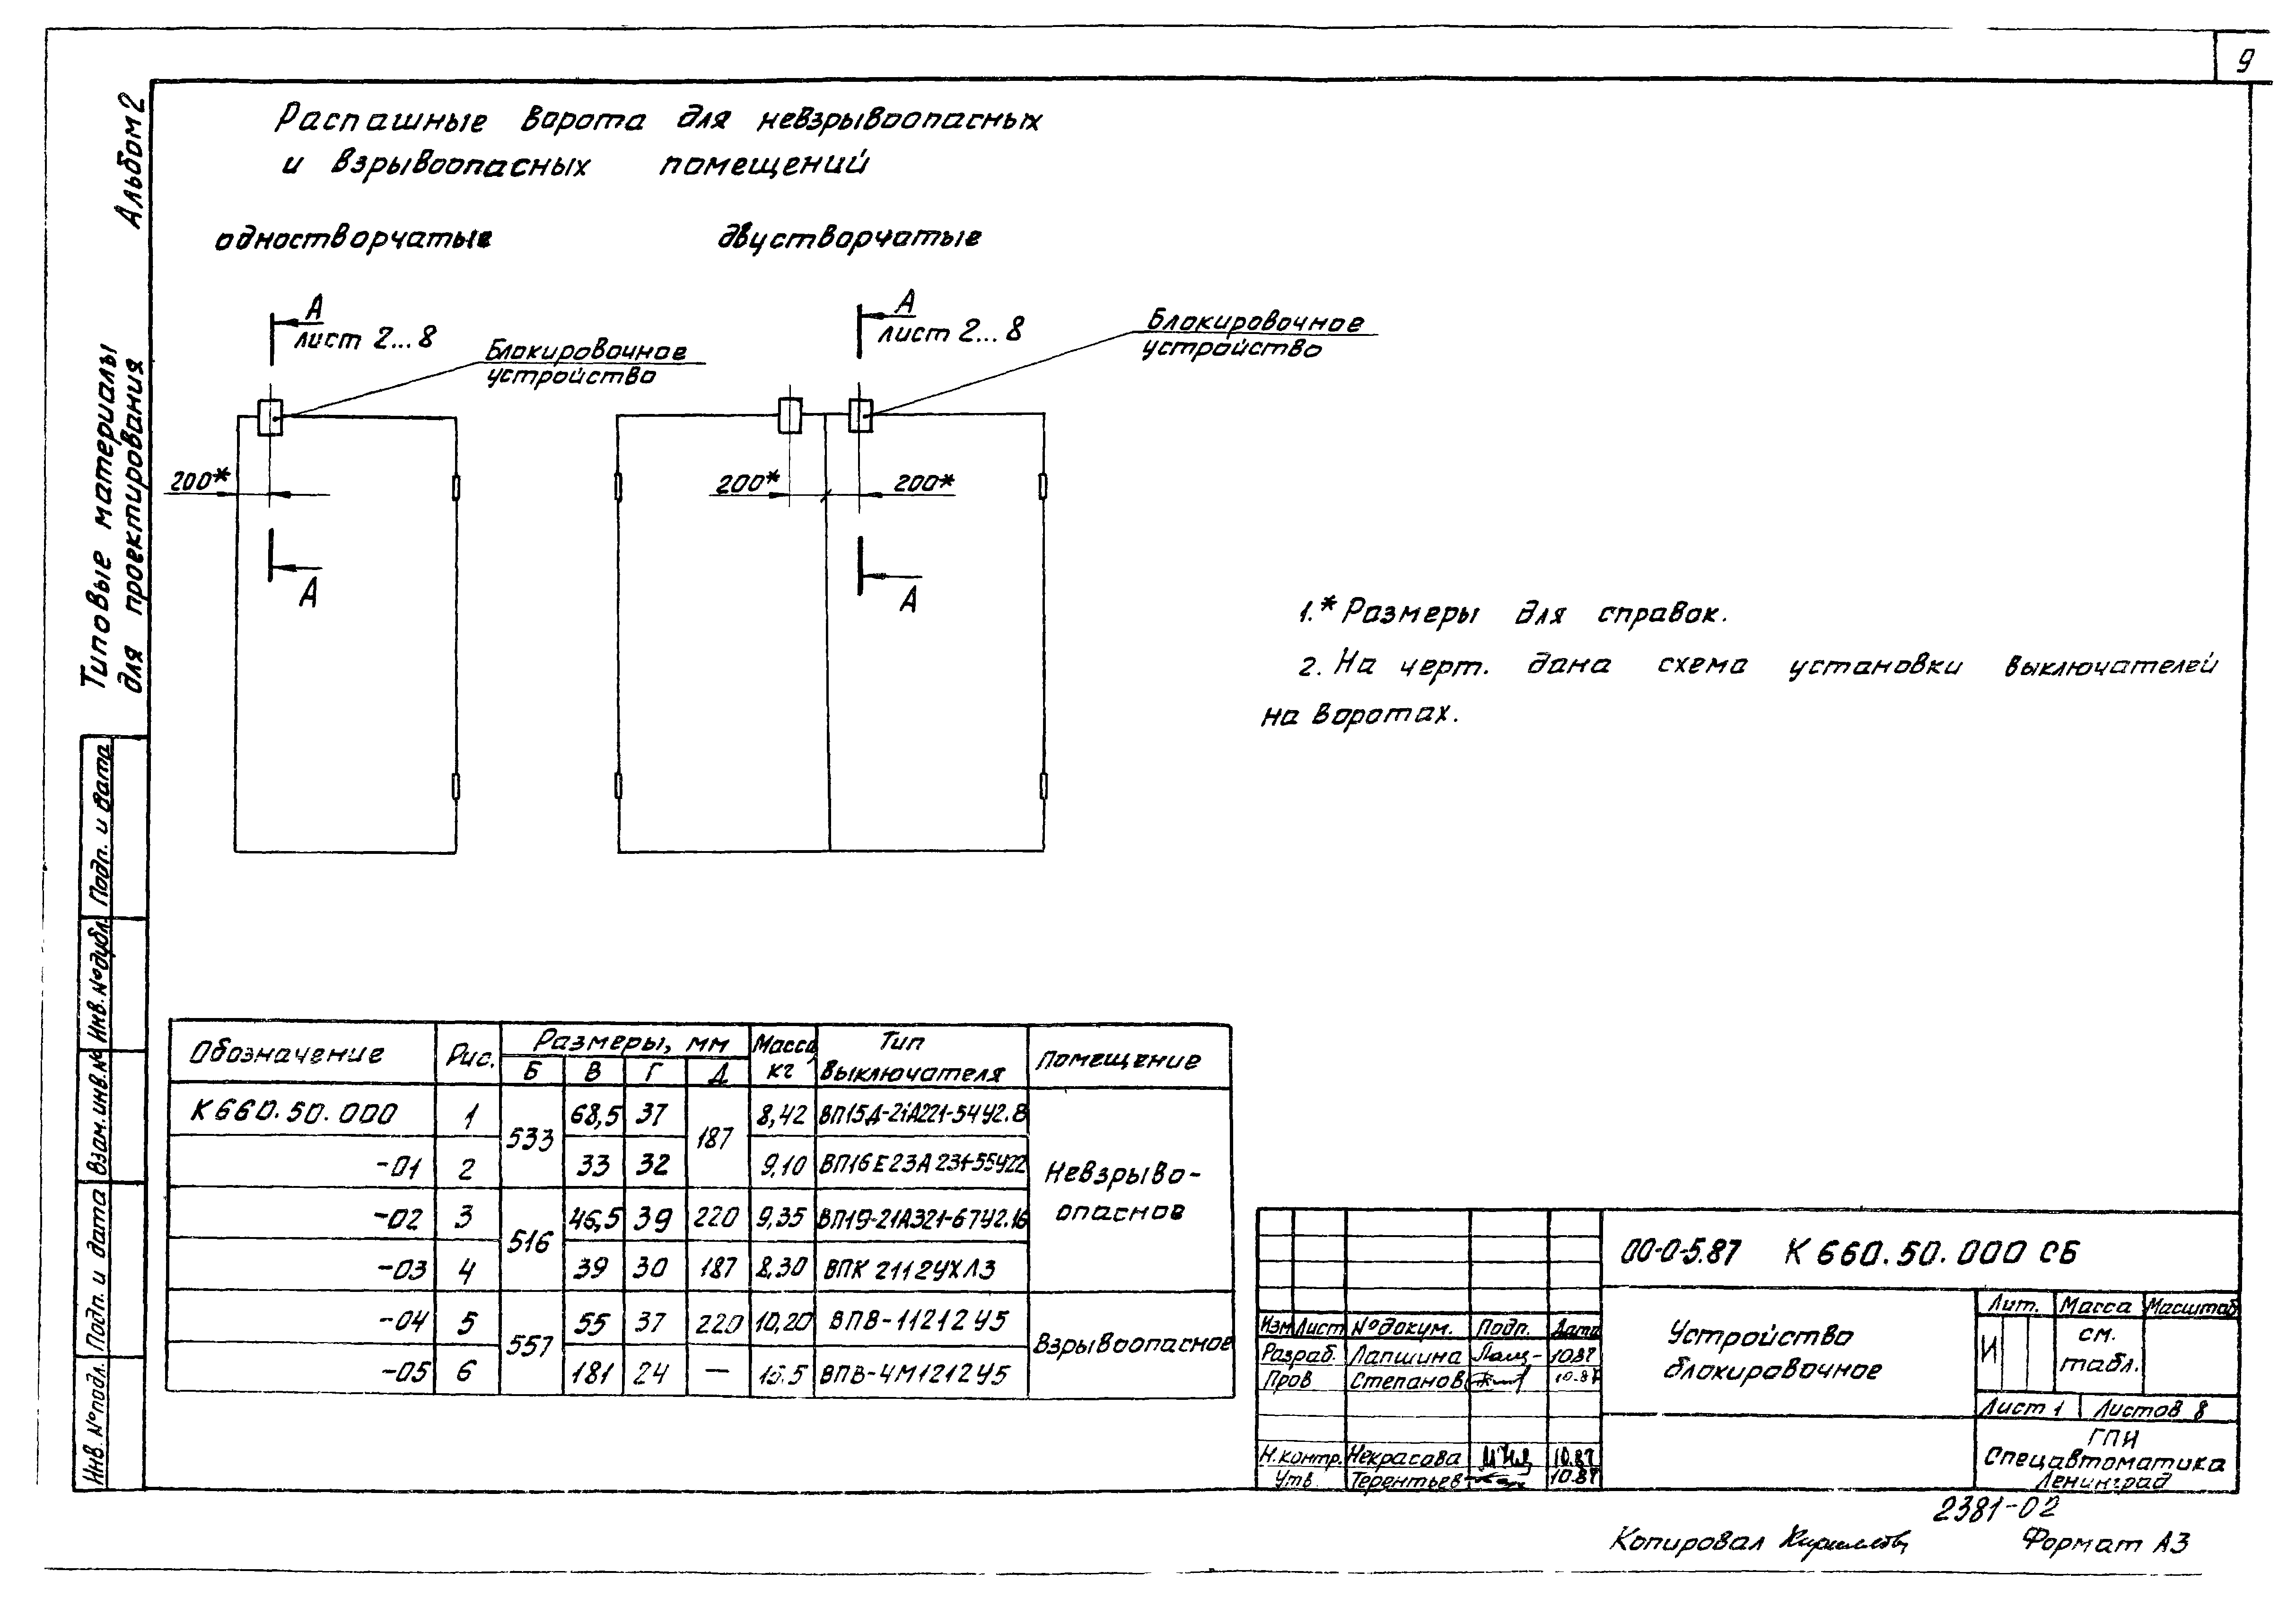 9
Альбом 2
Типовые материалы
для проектирования
Распашные ворота для невзрывоопасных
и взрывоопасных помещений
одностворчатые
двустворчатые
А
лист 2...8
Блокировочное
устройство
200*
А
А
лист 2...8
Блокировочное
устройство
200*
200*
А
1.* Размеры для справок.
2. На черт. дана схема установки выключателей
на воротах.
Обозначение Рис. Размеры, мм Масса, кг Тип выключателя Помещение
Б В Г Д
К660.50.000 1 533 68,5 37 187 8,42 ВП15Д-21А221-54У2.8 Невзрыво-
-01 2 33 32 9,10 ВП16Е23А231-55У22
-02 3 516 46,5 39 220 9,35 ВП19-21А321-67У2.16 опасное
-03 4 39 30 187 8,30 ВПК 2112УХЛ3
-04 5 557 55 37 220 10,20 ВПВ-11212У5 Взрывоопасное
-05 6 181 24 — ВПВ-4М1212У5
Подп. и дата
Инв.№дубл.
Взам.инв.№
Подп. и дата
Инв. №подл.
00-0-5.87 К660.50.000 СБ
Изм Лист №докум. Подп. Дата
Разраб. Лапшина 10.87
Пров Степанов 10.87
Н.контр. Некрасова 10.87
Утв. Терентьев 10.87
Устройство
блокировочное
Лит. Масса Масштаб
И см.
табл.
Лист 1 Листов 8
ГПИ
Спецавтоматика
Ленинград
2381-02
Копировал
Формат А3